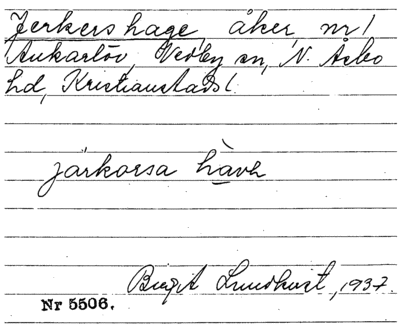 Jerkers hage, åker, nr 1
Ankarlöv, Vedby sn, N. Åsbo
hd, Kristianstads l.
järkorsa
Birgit Lundkvist, 1937.
Nr 5506.